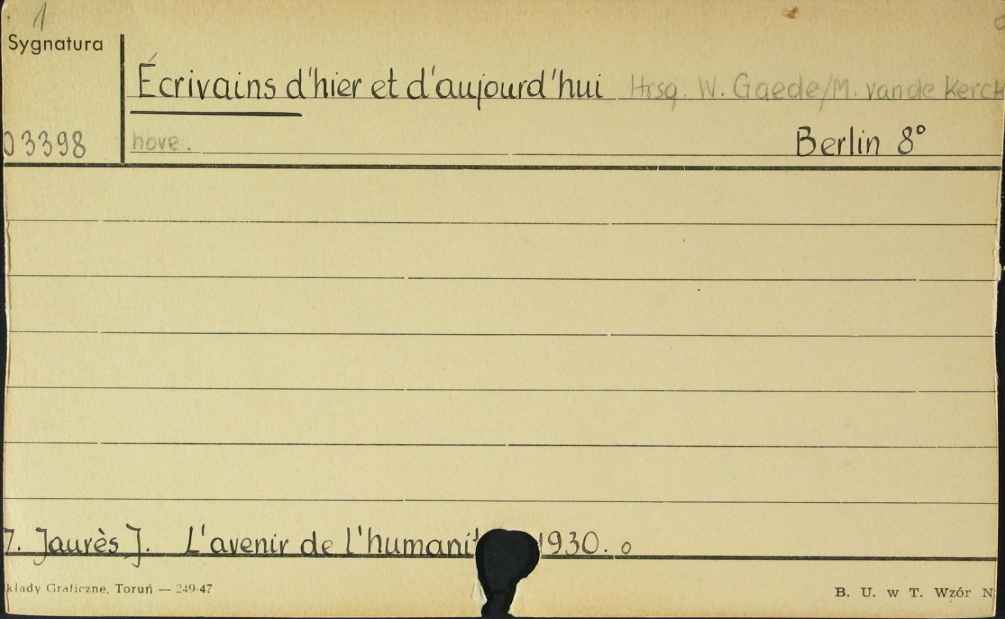 1
Sygnatura
Écrivains d'hier et d'aujourd'hui Hrsg. W. Gaede/M. van de Kerck
03398 hove. Berlin 8°
7. Jaurès J. L'avenir de l'humanit 1930. o
kłady Graficzne, Toruń — 249-47
B. U. w T. Wzór N